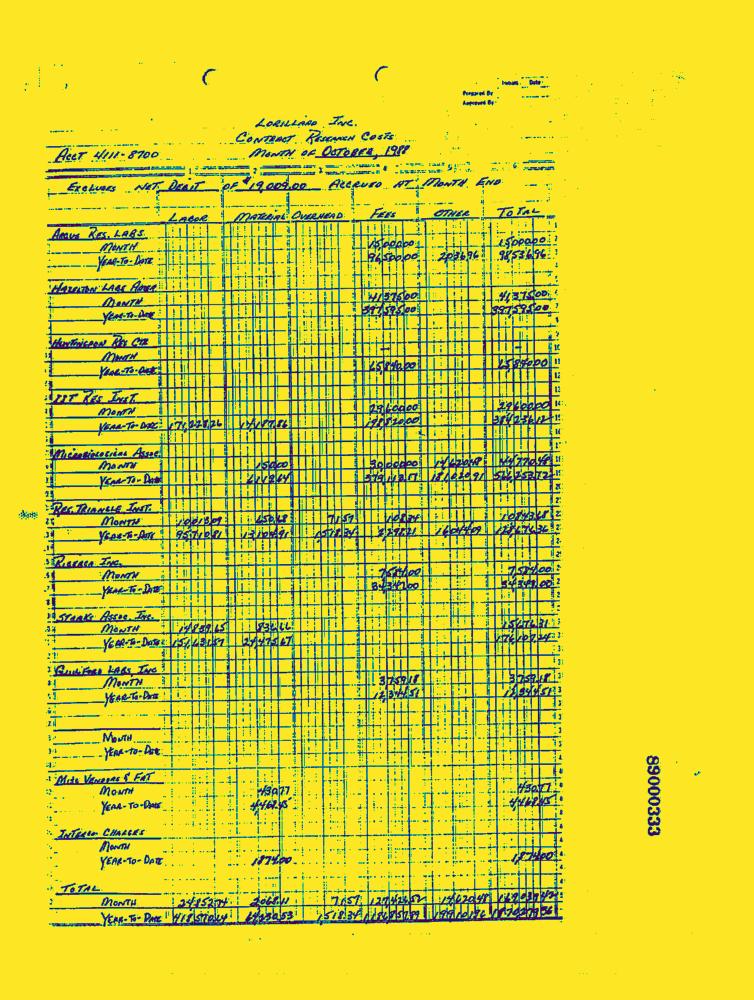 Initials Date
Prepared By
Approved By
LORILLARD INC.
CONTRACT RESEARCH COSTS
ACCT 4111-8700 MONTH OF OCTOBER, 1988
EXCLUDES NET DEBIT OF $19,009.00 ACCRUED AT MONTH END
LABOR MATERIAL OVERHEAD FEES OTHER TOTAL
ARGUS RES. LABS.
MONTH 15,000.00 15,000.00
YEAR-TO-DATE 96,500.00 2,036.96 98,536.96
HAZELTON LABS AMER
MONTH 41,375.00 41,375.00
YEAR-TO-DATE 397,595.00 397,595.00
HUNTINGDON RES CTR
MONTH – –
YEAR-TO-DATE 65,840.00 65,840.00
IIT RES INST.
MONTH 29,600.00 29,600.00
YEAR-TO-DATE 171,228.26 14,187.86 198,820.00 384,236.12
MICROBIOLOGICAL ASSOC.
MONTH 150.00 30,000.00 14,620.48 44,770.48
YEAR-TO-DATE 6,112.64
RES. TRIANGLE INST.
MONTH 10,013.09 650.68 71.57 108.34 10,843.68
YEAR-TO-DATE 95,710.81 13,104.91 1,518.34
RICERCA INC.
MONTH 7,584.00 7,584.00
YEAR-TO-DATE 34,347.00
STARKS ASSOC. INC.
MONTH 14,839.65 836.66 15,676.31
YEAR-TO-DATE 151,631.57 24,475.67 176,107.24
GUILFORD LABS, INC
MONTH 3,759.18 3,759.18
YEAR-TO-DATE 12,344.51 12,344.51
MONTH
YEAR-TO-DATE
MISC VENDORS & FAT
MONTH 430.77 430.77
YEAR-TO-DATE 4,468.45 4,468.45
INTERCO CHARGES
MONTH
YEAR-TO-DATE 1,874.00 1,874.00
TOTAL
MONTH 24,852.74 2,068.11 71.57 127,426.52 14,620.48 169,039.42
YEAR-TO-DATE 418,570.64 64,230.53 1,518.34
89000333